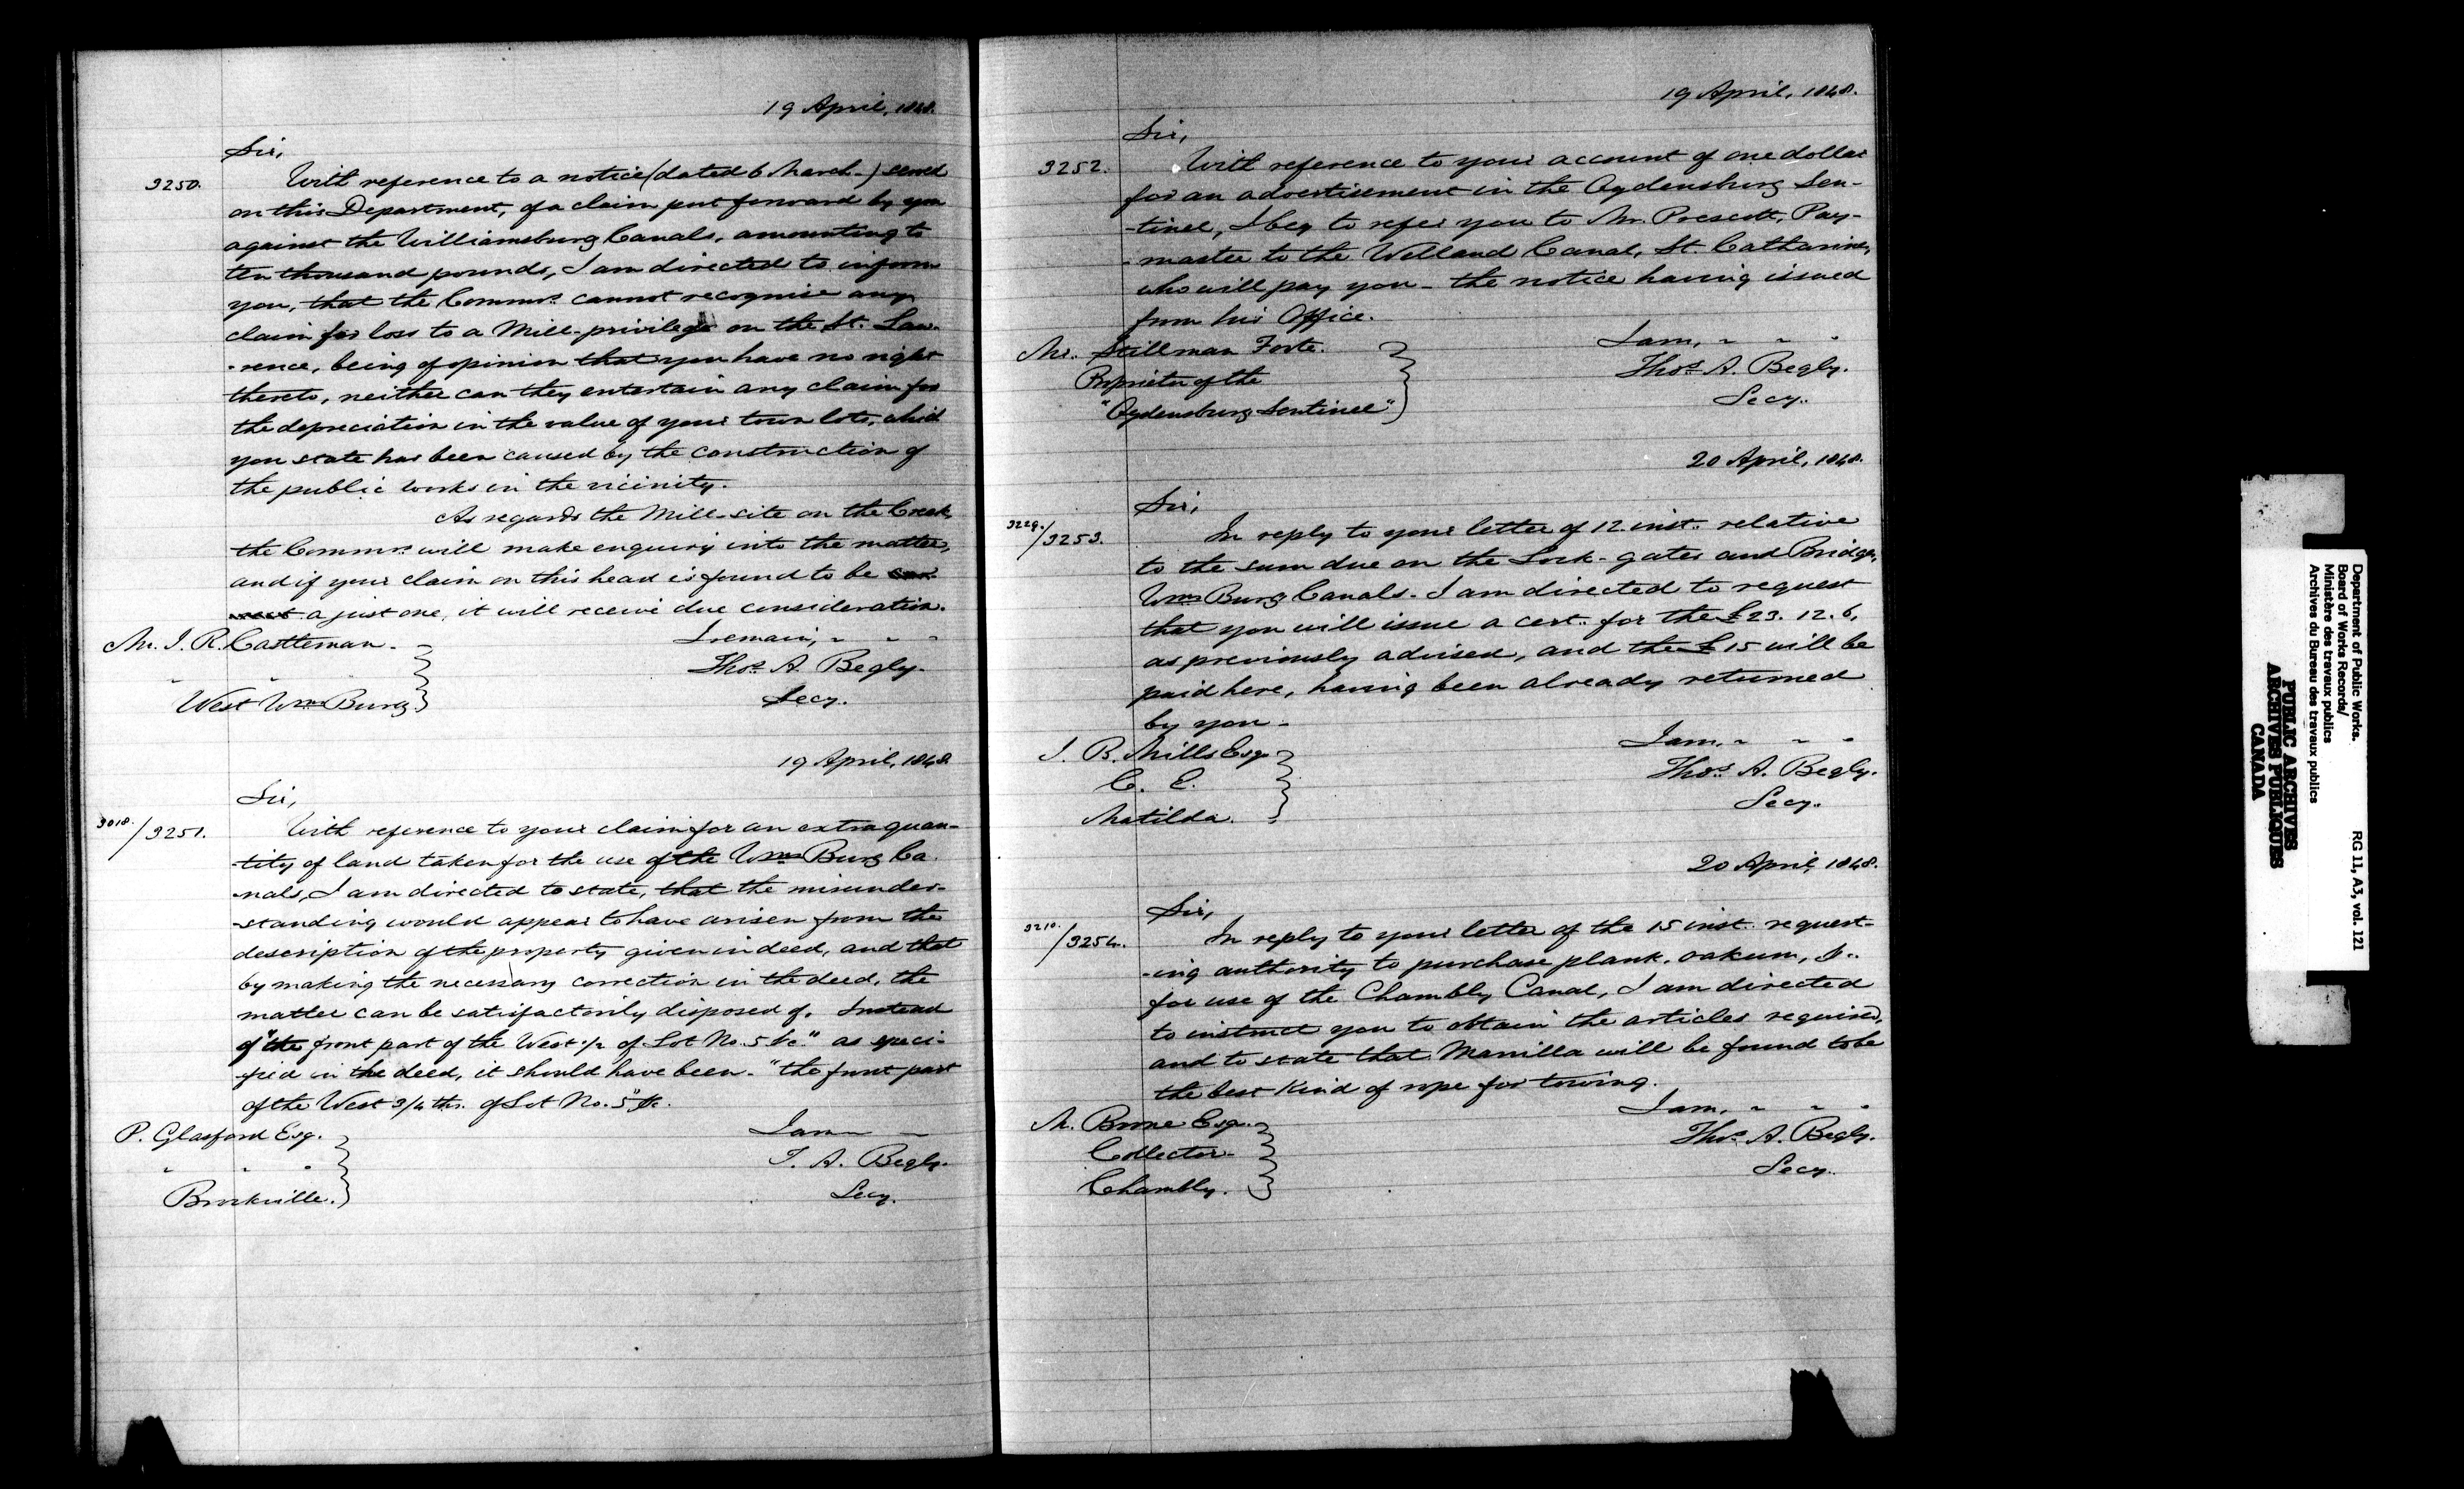 19 April, 1848.
Sir,
3250. With reference to a notice (dated 6 March-) served
on this Department, of a claim put forward by you
against the Williamsburg Canals, amounting to
ten thousand pounds, I am directed to inform
you, that the Commrs. cannot recognise any
claim for loss to a Mill-privilege on the St. Law-
-rence, being of opinion that you have no right
thereto, neither can they entertain any claim for
the depreciation in the value of your town lots, which
you state has been caused by the construction of
the public works in the vicinity.
As regards the Mill-site on the Creek,
the Commrs. will make enquiry into the matter,
and if your claim on this head is found to be
a just one, it will receive due consideration.
Mr. J. R. Castleman.
I remain, " " "
Thos. A. Begly.
West Wms Burg.
Secy.
19 April, 1848.
Sir,
3018./3251. With reference to your claim for an extra quan-
-tity of land taken for the use of the Wms Burg Ca-
-nals, I am directed to state, that the misunder-
-standing would appear to have arisen from the
description of the property given in deed, and that
by making the necessary correction in the deed, the
matter can be satisfactorily disposed of. Instead
of "the front part of the West 1/2 of Lot No. 5 &c." as speci-
-fied in the deed, it should have been - "the front part
of the West 3/4 ths. of Lot No. 5" &c.
P. Glasford Esq.
I am
" " "
T. A. Begly.
Brockville.
Secy.
19 April, 1848.
Sir,
3252. With reference to your account of one dollar
for an advertisement in the Ogdensburg Sen-
-tinel, I beg to refer you to Mr. Prescott, Pay-
-master to the Welland Canal, St. Catharines,
who will pay you - the notice having issued
from his Office.
Mr. Stillman Foote.
I am, " " "
Proprietor of the
Thos. A. Begly.
"Ogdensburg Sentinel"
Secy.
20 April, 1848.
Sir,
3229./3253. In reply to your letter of 12 inst. relative
to the sum due on the Lock-gates and Bridges,
Wms Burg Canals. I am directed to request
that you will issue a cert. for the £23. 12. 6,
as previously advised, and the £15 will be
paid here, having been already returned
by you -
J. B. Mills Esq.
I am, " " "
C. E.
Thos. A. Begly.
Matilda.
Secy.
20 April, 1848.
Sir,
3210./3254. In reply to your letter of the 15 inst. request-
-ing authority to purchase plank, oakum, &c.
for use of the Chambly Canal, I am directed
to instruct you to obtain the articles required,
and to state that Manilla will be found to be
the best kind of rope for towing.
I am, " " "
Esq.
Thos. A. Begly.
Collector.
Secy.
Chambly.
Department of Public Works.
Board of Works Records/
Ministère des travaux publics
Archives du Bureau des travaux publics
RG 11, A3, vol. 121
PUBLIC ARCHIVES
ARCHIVES PUBLIQUES
CANADA